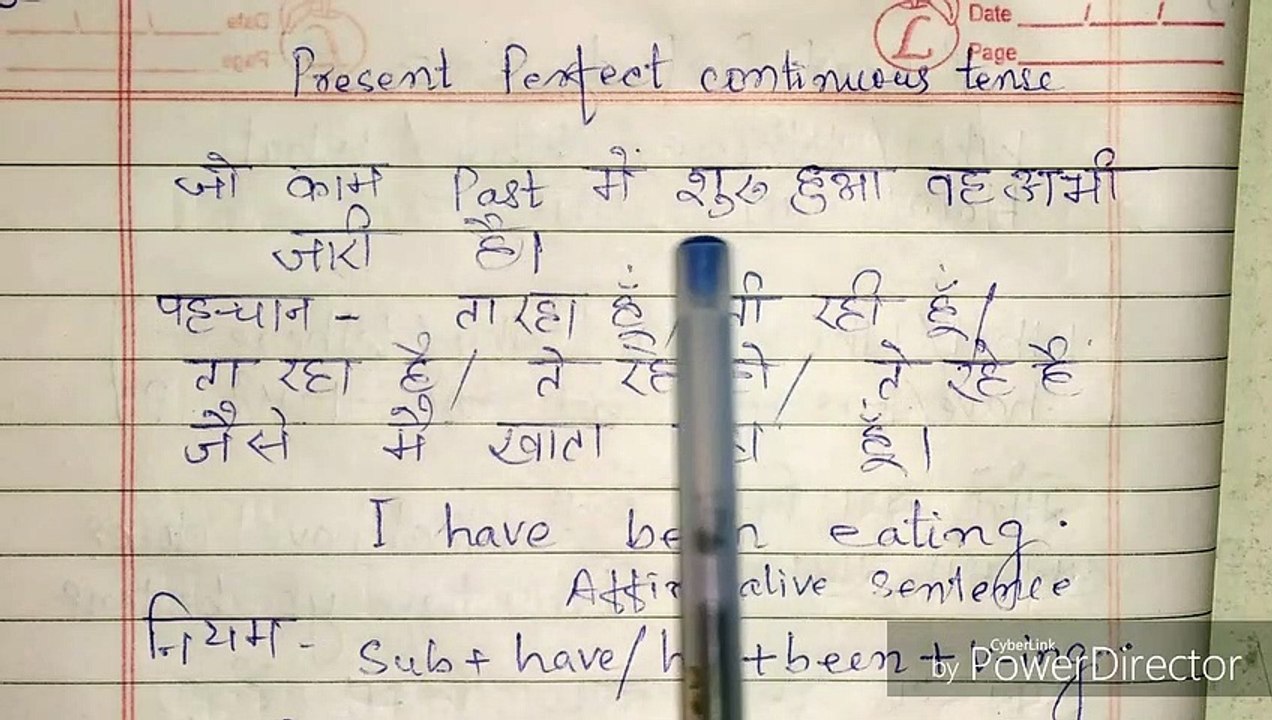 Date __/__/__
Page
Present Perfect continuous tense
जो काम Past में शुरु हुआ वह अभी
जारी है।
पहचान - ता रहा हूँ, रही हूँ/
ता रहा है/ ते / ते रहे है
जैसे मै खाता हूँ।
I have eating.
sentence
नियम - Sub + have/ + been +
CyberLink
by PowerDirector